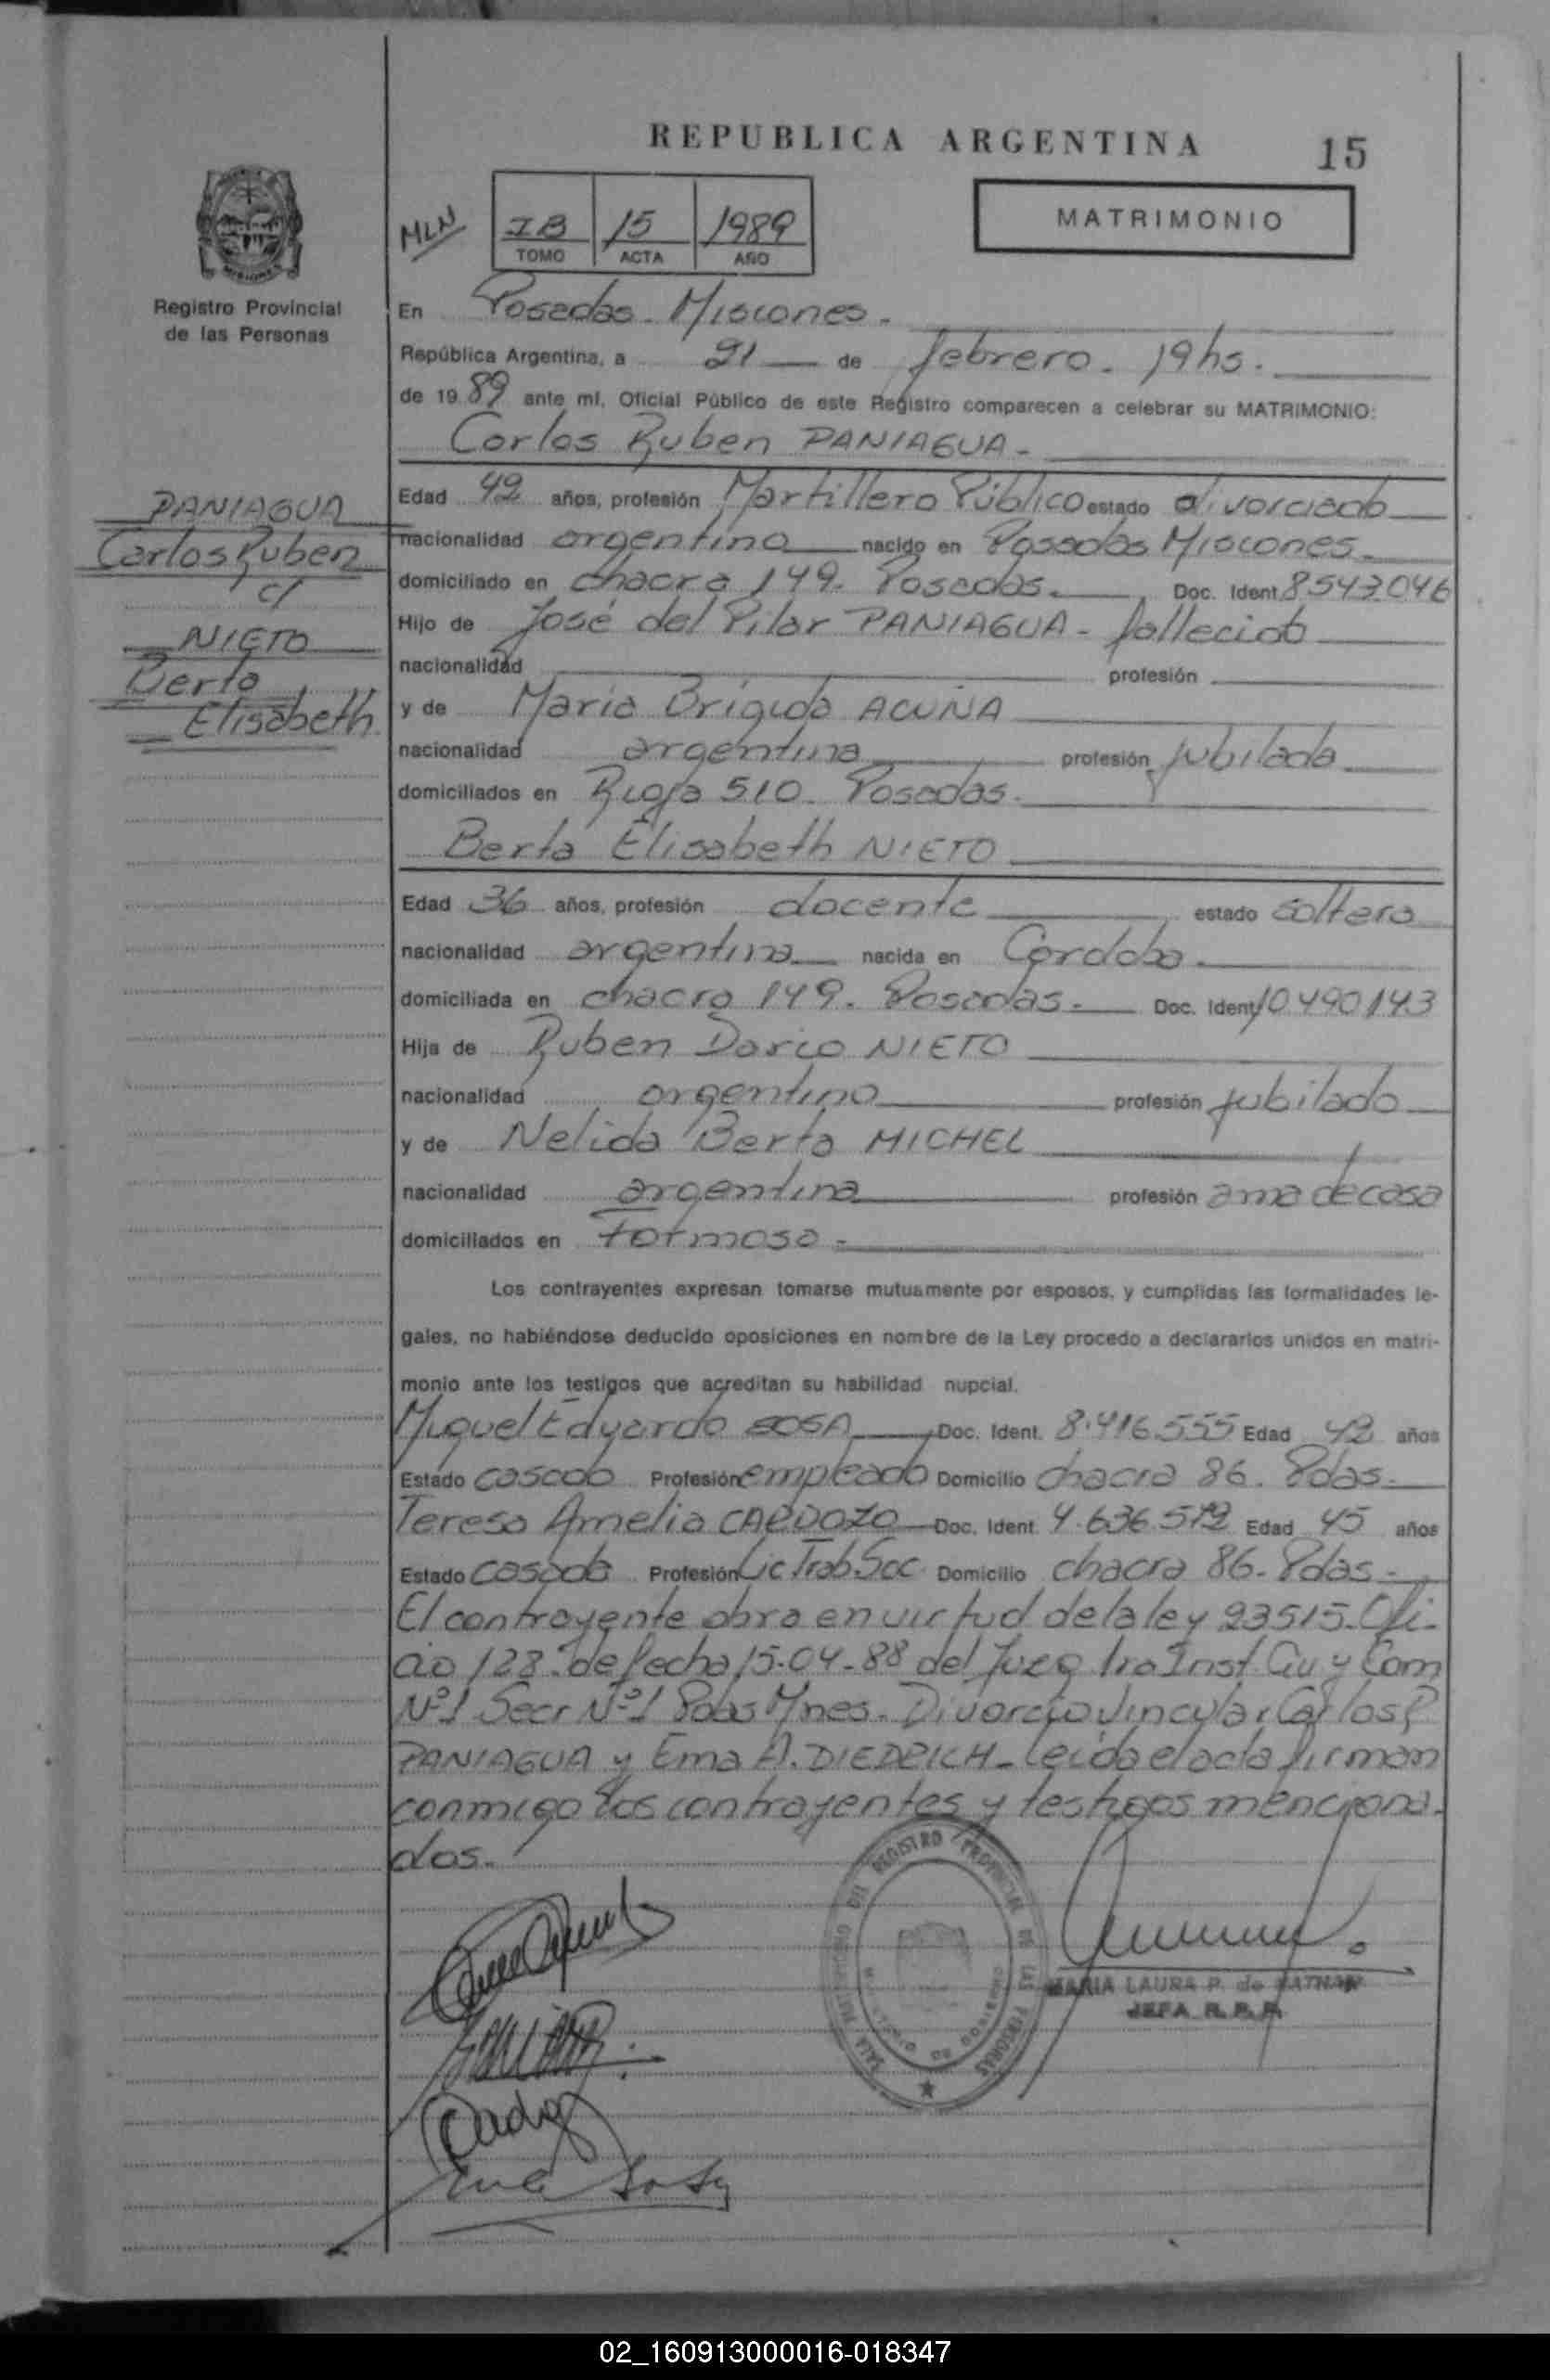 REPUBLICA ARGENTINA
15
MATRIMONIO
MLN
IB 15 1989
TOMO ACTA AÑO
Registro Provincial
de las Personas
En Posadas - Misiones.
República Argentina, a 21 de febrero. 19hs.
de 19 89 ante mí, Oficial Público de este Registro comparecen a celebrar su MATRIMONIO:
Carlos Ruben PANIAGUA-
PANIAGUA
Carlos Ruben
c/
NIETO
Berta
Elisabeth
Edad 42 años, profesión Martillero Público estado divorciado
nacionalidad argentino nacido en Posadas Misiones.
domiciliado en chacra 149. Posadas. Doc. Ident. 8543.046
Hijo de José del Pilar PANIAGUA - fallecido
nacionalidad profesión
y de Maria Brigida ACUÑA
nacionalidad argentina profesión jubilada
domiciliados en Rioja 510. Posadas.
Berta Elisabeth NIETO
Edad 36 años, profesión docente estado soltera
nacionalidad argentina nacida en Cordoba.
domiciliada en chacra 149. Posadas. Doc. Ident. 10.490.143
Hija de Ruben Dario NIETO
nacionalidad argentino profesión jubilado
y de Nelida Berta MICHEL
nacionalidad argentina profesión ama de casa
domiciliados en Formosa.
Los contrayentes expresan tomarse mutuamente por esposos, y cumplidas las formalidades le-
gales, no habiéndose deducido oposiciones en nombre de la Ley procedo a declararlos unidos en matri-
monio ante los testigos que acreditan su habilidad nupcial.
Miguel Eduardo SOSA Doc. Ident. 8.416.555 Edad 42 años
Estado casado Profesión empleado Domicilio chacra 86. Pdas.
Teresa Amelia CARDOZO Doc. Ident. 4.636.572 Edad 45 años
Estado casada Profesión Lic Trab. Soc. Domicilio chacra 86. Pdas.
El contrayente obra en virtud de la ley 23515. Ofi-
cio 128. de fecha 15-04-88 del Juzg 1ra Inst. Civ y Com
Nº1 Secr Nº1 Pdas Mnes. Divorcio Vincular Carlos R
PANIAGUA y Ema A. DIEDRICH- leida el acta firman
conmigo los contrayentes y testigos menciona-
dos.
REGISTRO PROVINCIAL DE LAS PERSONAS
MARIA LAURA P. de
JEFA R. P. P.
02_160913000016-018347